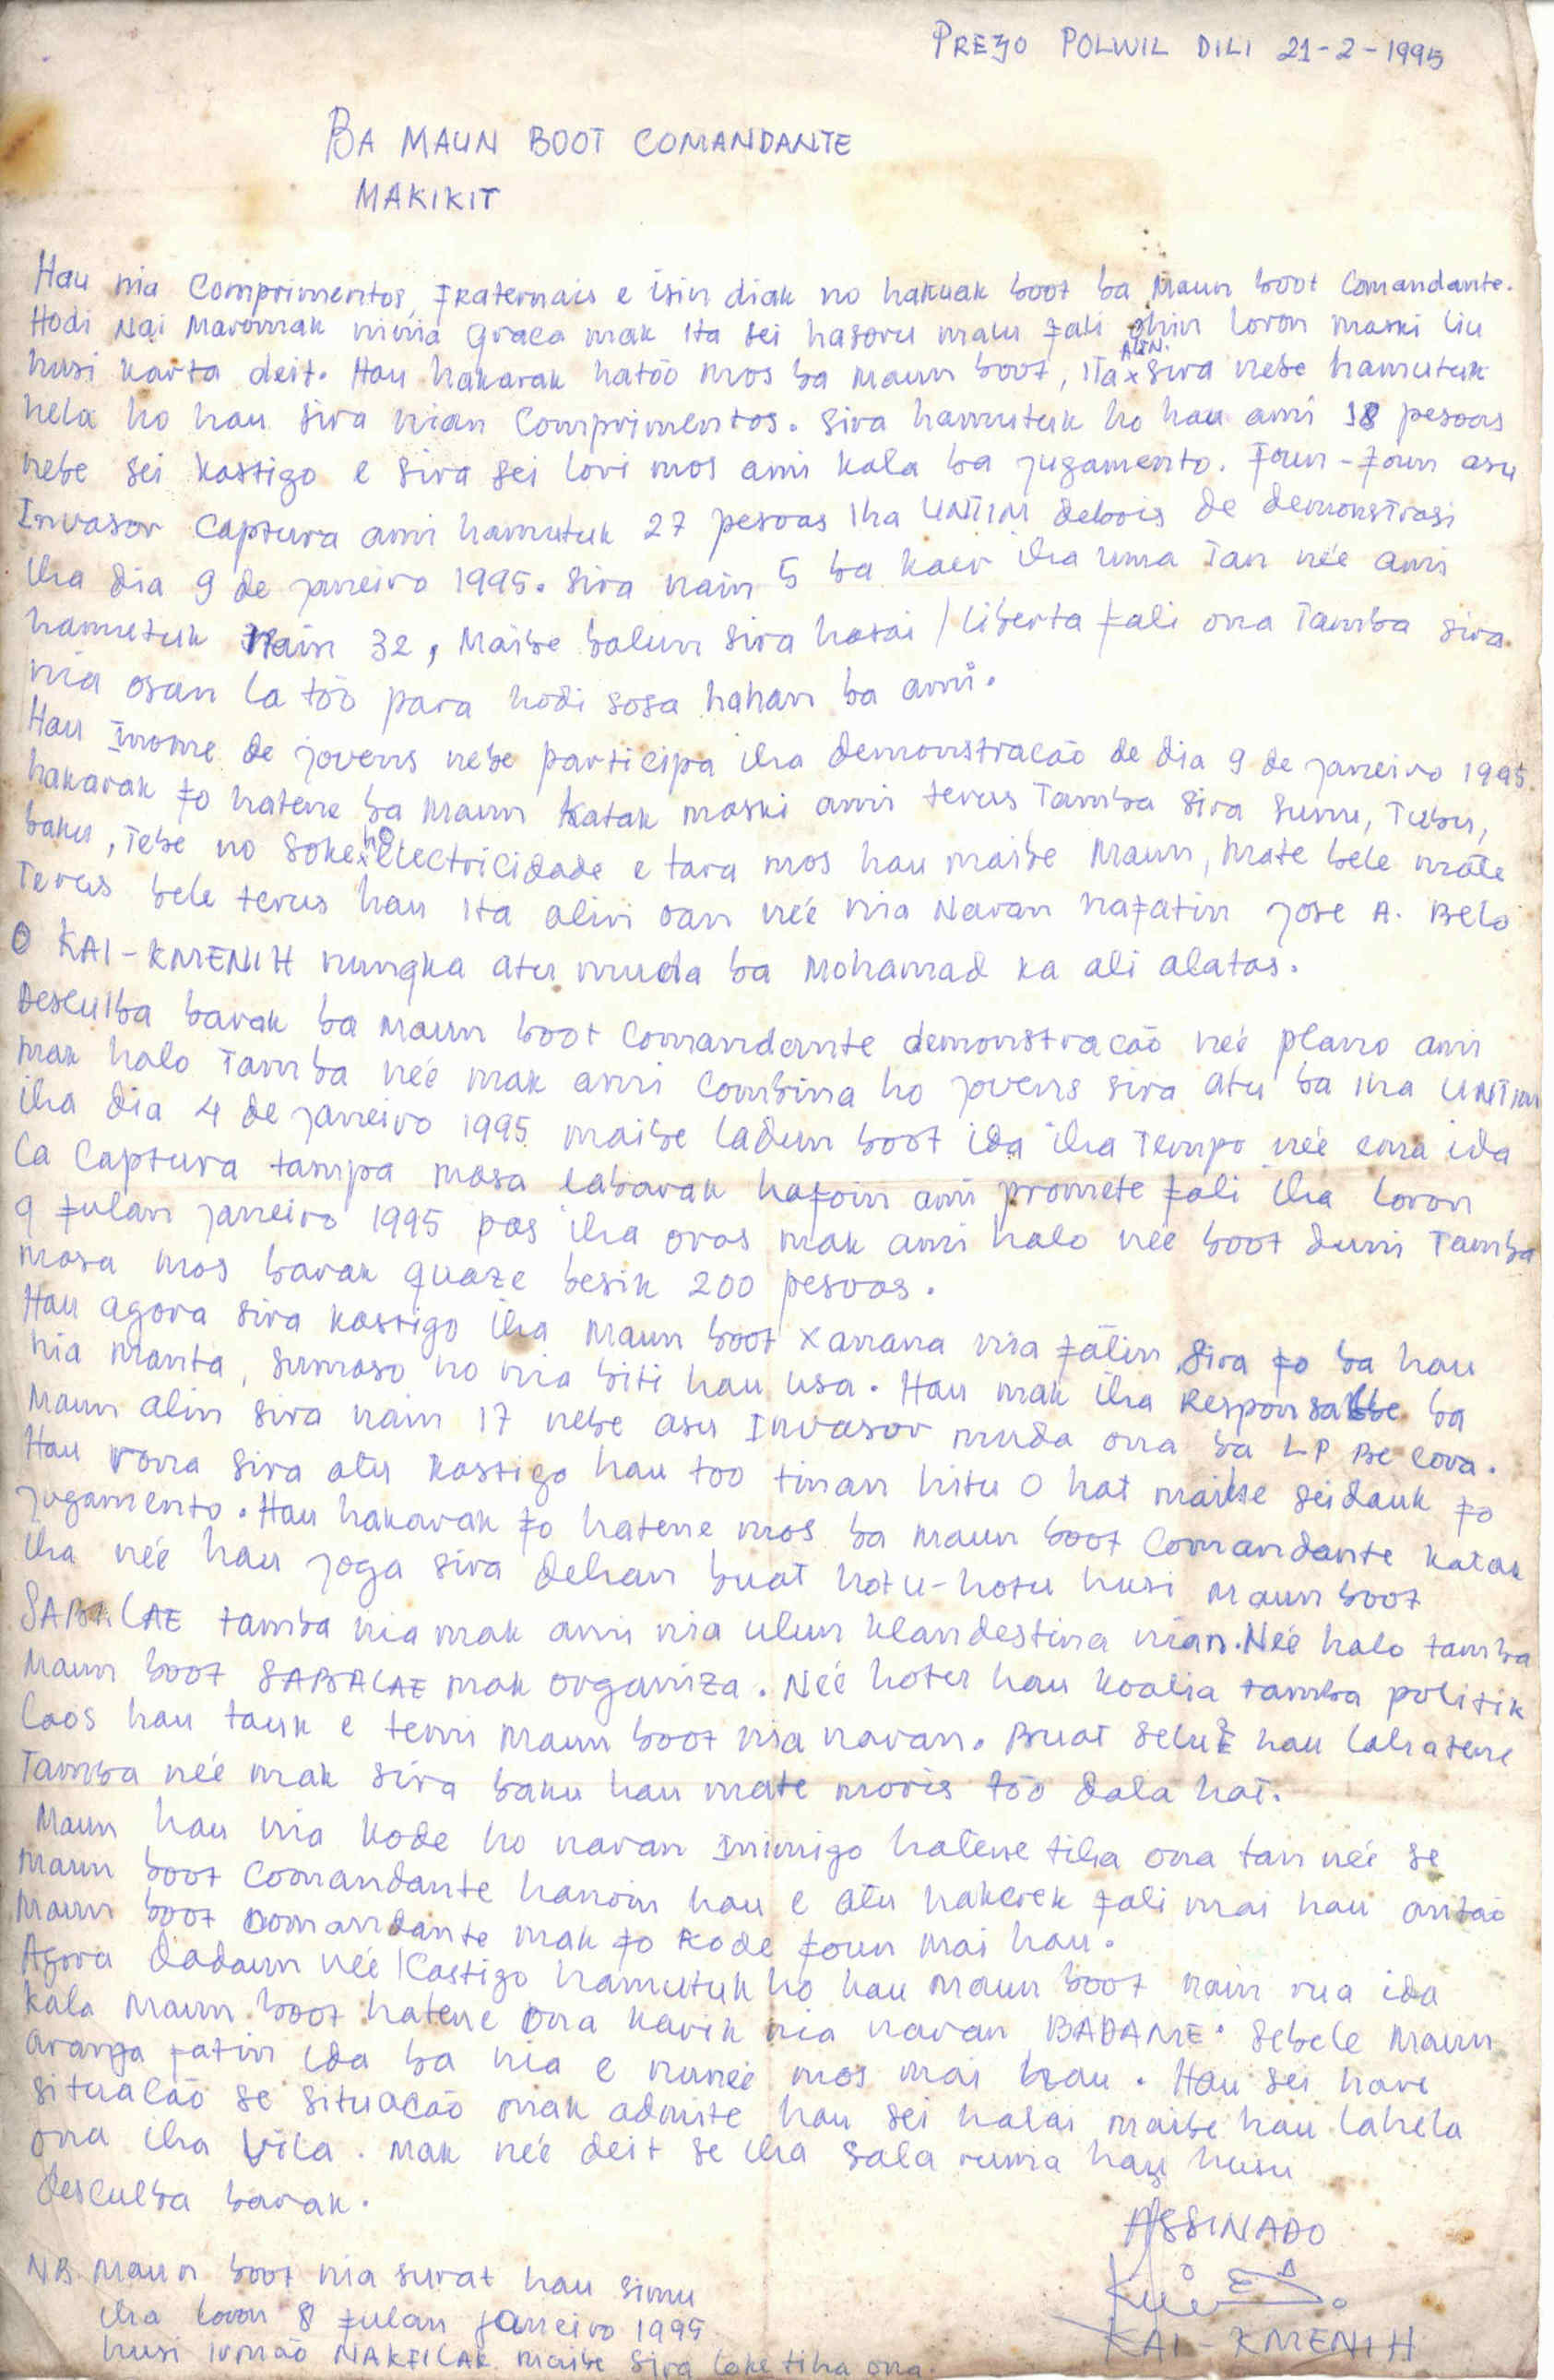 PREZO POLWIL DILI 21-2-1995
BA MAUN BOOT COMANDANTE
MAKIKIT
Hau nia Comprimentos, Fraternais e isin diak no hakuak boot ba Maun boot Comandante.
Hodi Nai Maromak ninia graca mak Ita sei hasoru malu fali ohin loron maski liu
husi karta deit. Hau hakarak hatóo mos ba maun boot, ita ALIN sira nebe hamutuk
hela ho hau sira nian Comprimentos. Sira hamutuk ho hau ami 18 pesoas
nebe sei kastigo e sira sei lori mos ami kala ba jugamento. Foun-foun asu
Invasor Captura ami hamutuk 27 pesoas iha UNTIM debois de demonstrasi
iha dia 9 de janeiro 1995. Sira nain 5 ba kaer iha uma Tan neé ami
hamutuk nain 32, Maibe balun sira hasai / liberta fali ona Tamba sira
nia osan la tóo para hodi sosa hahan ba ami.
Hau Inome de jovens nebe participa iha demonstracão de dia 9 de janeiro 1995
hakarak fo hatene ba Maun katak maski ami terus Tamba sira sunu, Tuku,
baku, Tebe no soke ho electricidade e tara mos hau maibe Maun, Mate bele mate
Terus bele terus hau ita alin oan neé nia Naran nafatin Jose A. Belo
O KAI-KMENIH nungka atu muda ba Mohamad ka ali alatas.
Desculba barak ba Maun boot Comandante demonstracão neé plano ami
mak halo Tamba neé mak ami Combina ho jovens sira atu ba iha UNTIM
iha dia 4 de janeiro 1995 maibe ladun boot ida iha Tempo neé ema ida
la Captura tampa masa labarak hafoin ami promete fali iha loron
9 fulan janeiro 1995 pas iha oras mak ami halo neé boot duni Tamba
masa mos barak quaze besik 200 pesoas.
Hau agora sira kastigo iha Maun boot Xanana nia fatin, Sira fo ba hau
nia manta, sumaso no nia biti hau usa. Hau mak iha Responsabbe ba
Maun alin sira nain 17 nebe asu Invasor muda ona ba LP Becora.
Hau rona sira atu kastigo hau too tinan hitu O hat maibe seidauk fo
jugamento. Hau hakarak fo hatene mos ba Maun boot Comandante katak
iha neé hau joga sira dehan buat hotu-hotu husi Maun boot
SABALAE tamba nia mak ami nia ulun klandestina nian. Neé halo tamba
Maun boot SABALAE mak organiza. Neé hotu hau koalia tamba politik
laos hau tauk e temi Maun boot nia naran. Buat seluk hau lahatene
Tamba neé mak sira baku hau mate moris tóo dala hat.
Maun hau nia kode ho naran Inimigo hatene tiha ona tan neé se
Maun boot Comandante hanoin hau e atu hakerek fali mai hau antão
Maun boot Comandante mak fo kode foun mai hau.
Agora dadaun neé Kastigo hamutuk ho hau Maun boot nain rua ida
kala Maun boot hatene ona karik nia naran BADAME. Sebele Maun
aranga fatin ida ba nia e nuneé mos mai hau. Hau sei hare
situacão se situacão mak admite hau sei halai maibe hau lahela
ona iha Vila. Mak neé deit se iha sala ruma hau husu
desculba barak.
ASSINADO
KAI-KMENIH
NB. Maun boot nia surat hau simu
iha loron 8 fulan janeiro 1995
husi irmão NAKFILAK maibe sira loke tiha ona.